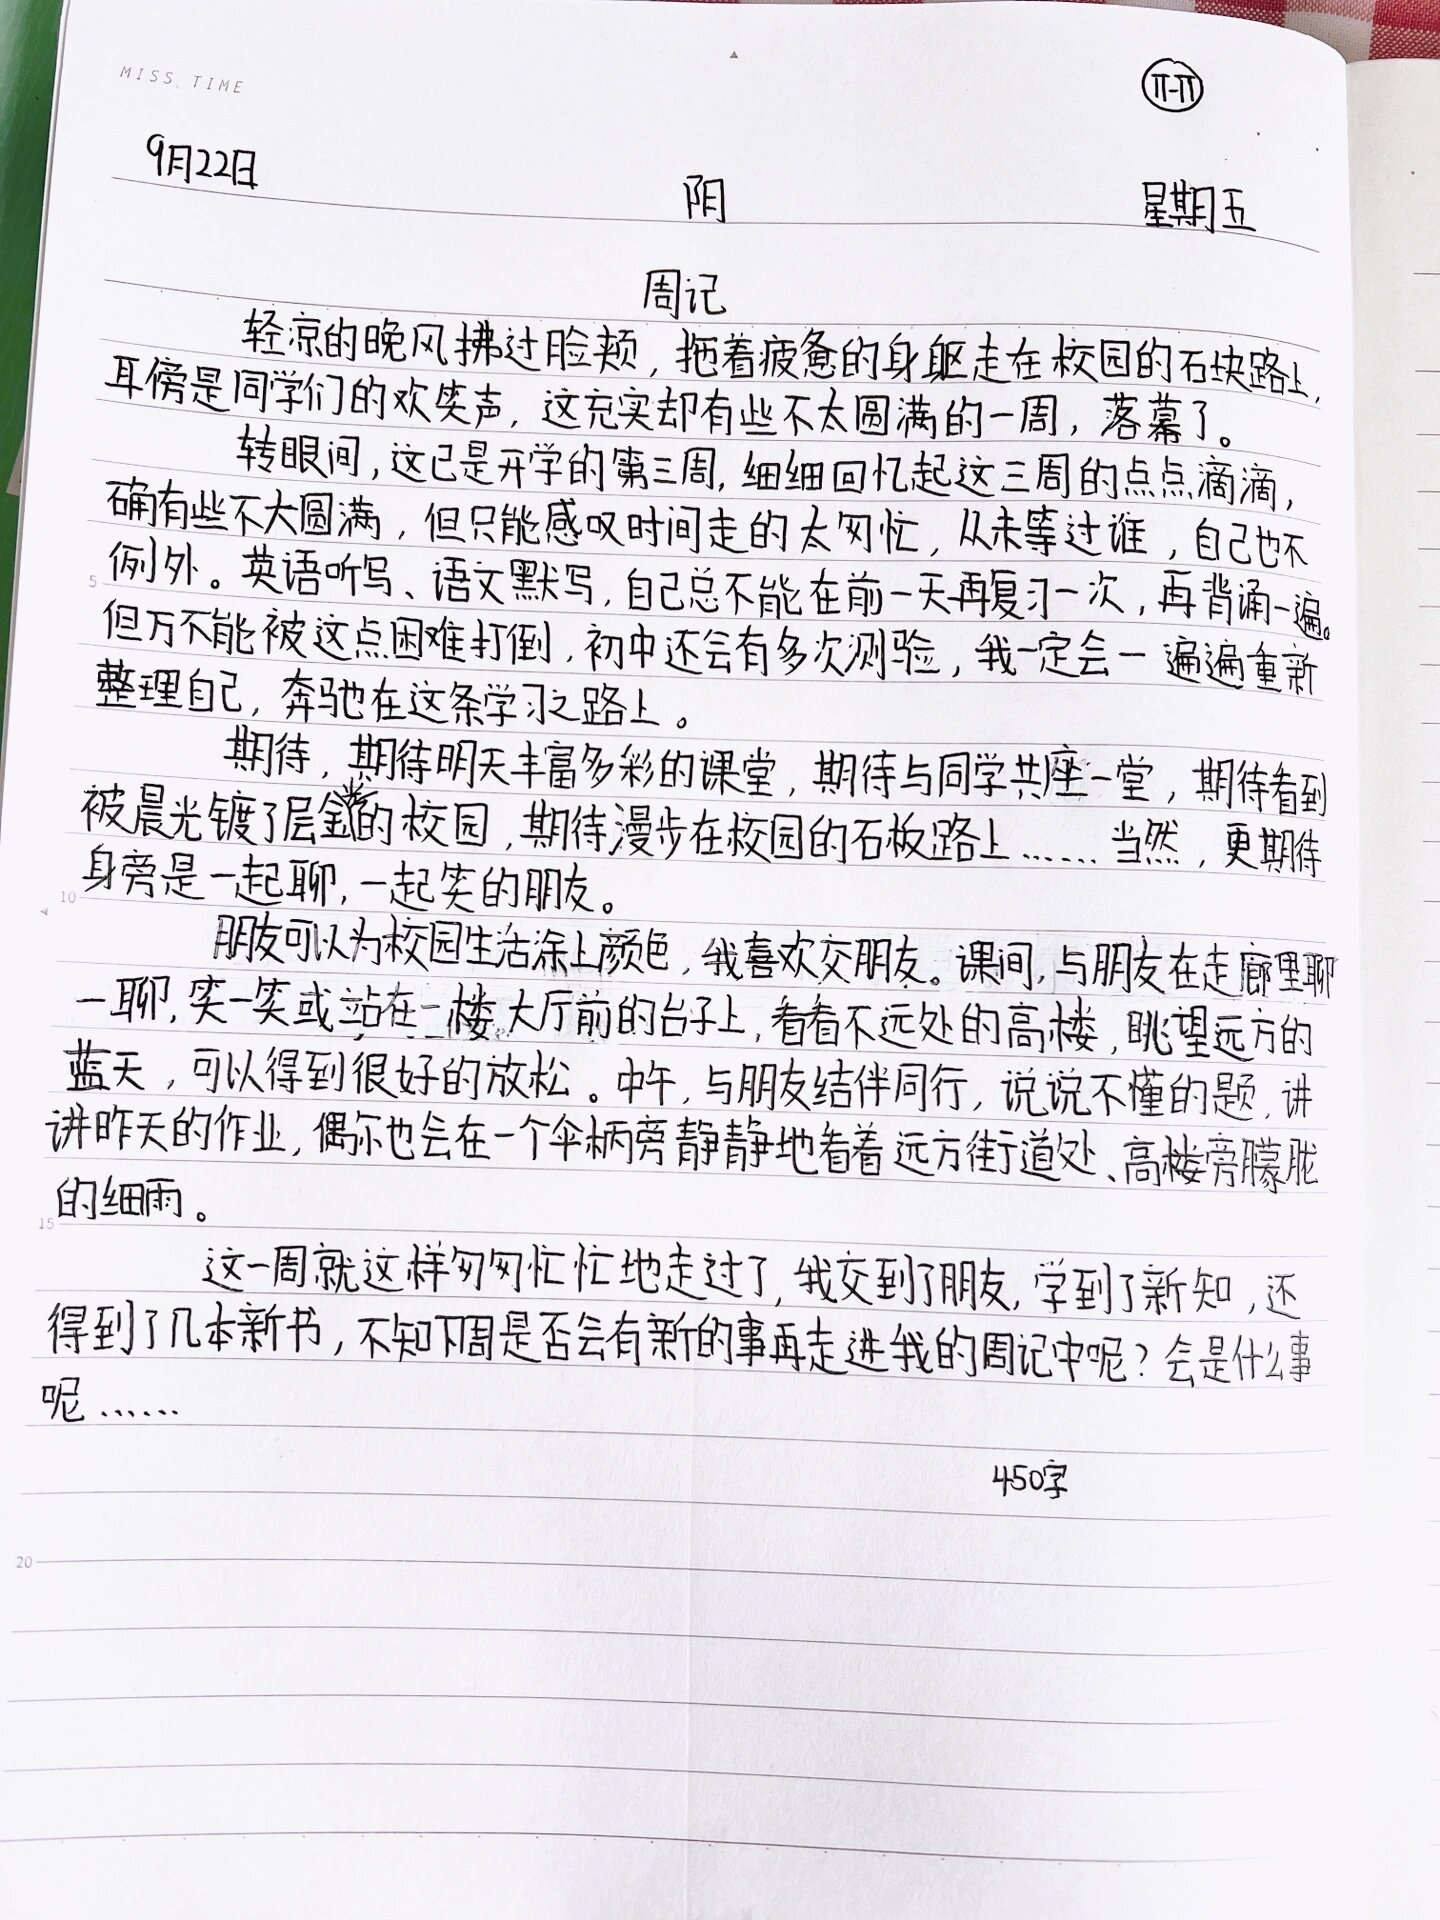 MISS.TIME
π-π
9月22日 阴 星期五
周记
轻凉的晚风拂过脸颊，拖着疲惫的身躯走在校园的石块路上，
耳傍是同学们的欢笑声，这充实却有些不太圆满的一周，落幕了。
转眼间，这已是开学的第三周，细细回忆起这三周的点点滴滴，
确有些不大圆满，但只能感叹时间走的太匆忙，从未等过谁，自己也不
5 例外。英语听写、语文默写，自己总不能在前一天再复习一次，再背诵一遍。
但万不能被这点困难打倒，初中还会有多次测验，我一定会一遍遍重新
整理自己，奔驰在这条学习之路上。
期待，期待明天丰富多彩的课堂，期待与同学共座一堂，期待看到
被晨光镀了层金的校园，期待漫步在校园的石板路上……当然，更期待
10 身旁是一起聊，一起笑的朋友。
朋友可以为校园生活涂上颜色，我喜欢交朋友。课间，与朋友在走廊里聊
一聊，笑一笑或站在一楼大厅前的台子上，看看不远处的高楼，眺望远方的
蓝天，可以得到很好的放松。中午，与朋友结伴同行，说说不懂的题，讲
讲昨天的作业，偶尔也会在一个伞柄旁静静地看着远方街道处、高楼旁朦胧
15 的细雨。
这一周就这样匆匆忙忙地走过了，我交到了朋友，学到了新知，还
得到了几本新书，不知下周是否会有新的事再走进我的周记中呢？会是什么事
呢……
450字
20